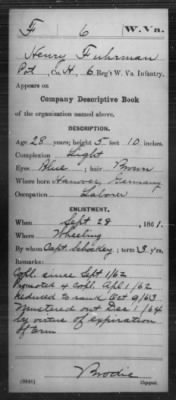 F 6 W. Va.
Henry Fuhrman
Pvt, Co. H, 6 Reg't W. Va. Infantry.
Appears on
Company Descriptive Book
of the organization named above.
DESCRIPTION.
Age 28 years; height 5 feet 10 inches.
Complexion Light
Eyes Blue; hair Brown
Where born Hanover, Germany
Occupation Laborer
ENLISTMENT.
When Sept 28, 1861.
Where Wheeling
By whom Capt. ; term 3 y'rs.
Remarks:
Copl. since Sept 1/62
Promoted 4 Copl. Apl 1/62
Reduced to rank Oct 9/63
Mustered out Dec 1/64
by virtue of expiration
of term
Brodie
Copyist.